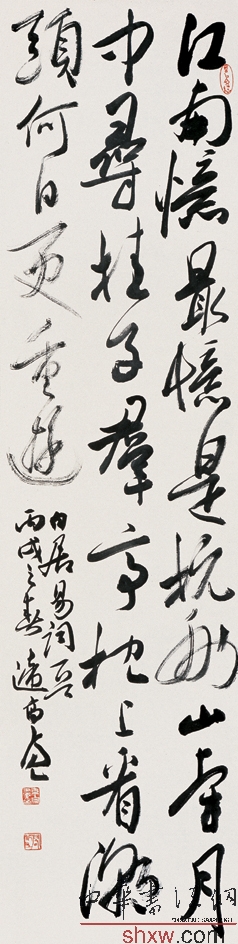 江南憶最憶是杭州山寺月
中尋桂子羣亭枕上看潮
頭何日更重遊
白居易詞
丙戌之春
中華書法網
shxw.com